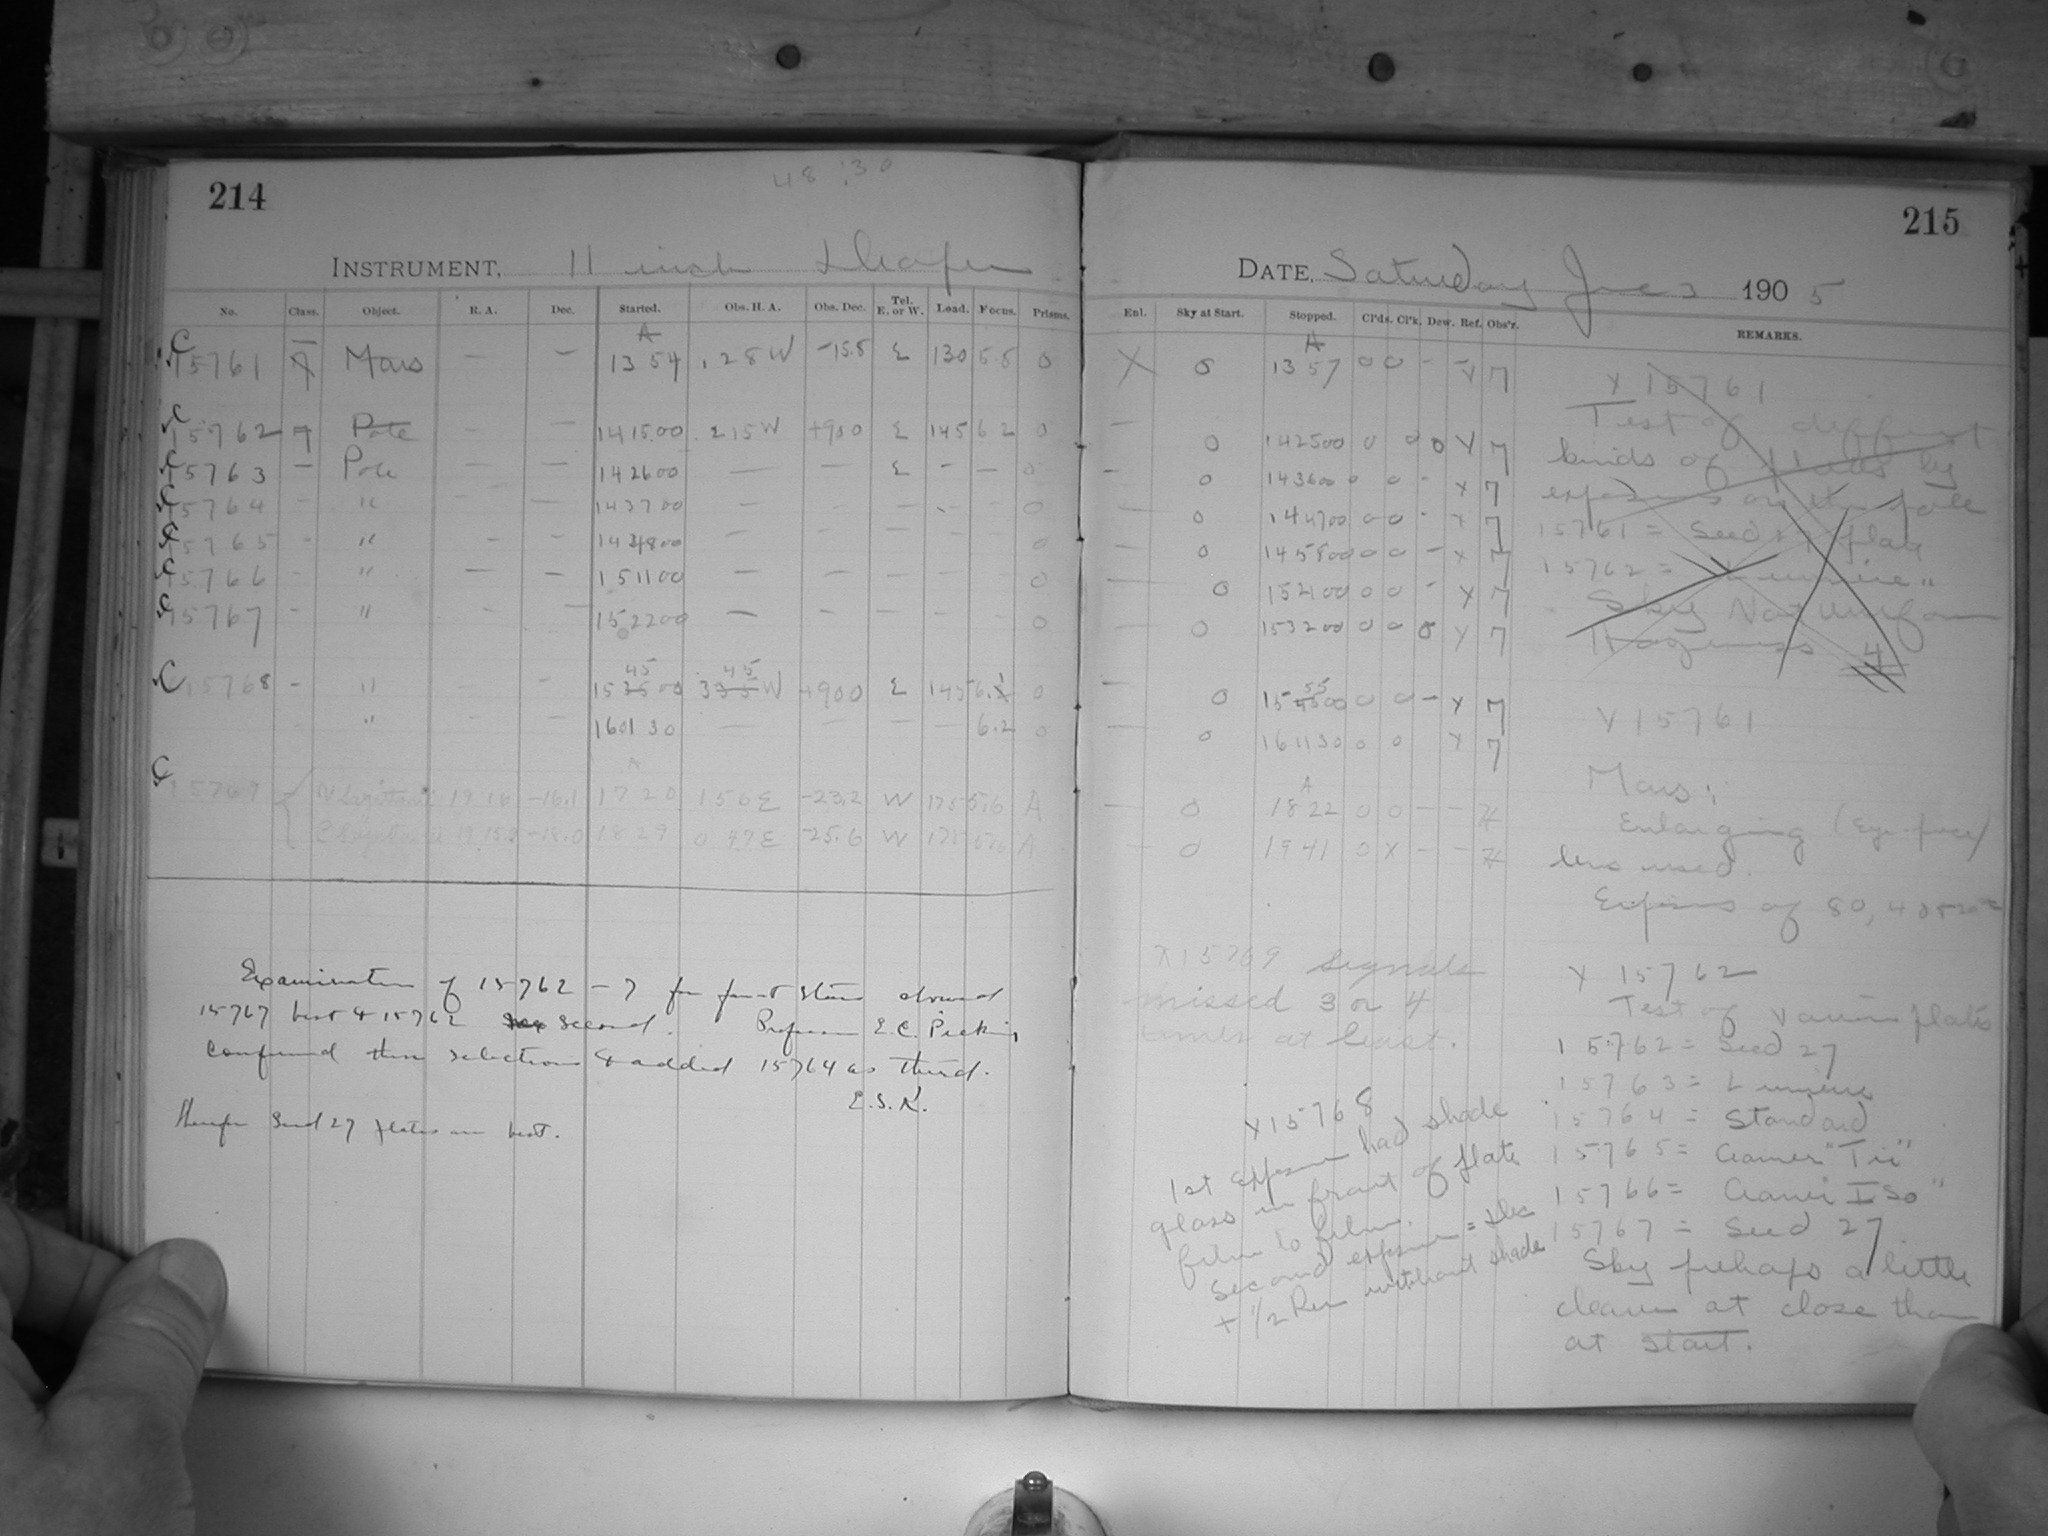 48:30
214
INSTRUMENT, 11 inch Draper
No. Class. Object. R. A. Dec. Started. Obs. H. A. Obs. Dec. Tel. E. or W. Load. Focus. Prisms.
A
C 15761 A Mars — — 13 54 1 28 W -15.8 E 130 5.8 0
C 15762 Pole — — 14 15 00 2 15 W +90.0 E 145 6.2 0
C 15763 — Pole — — 14 26 00 — — E - — 0
C 15764 - " - — 14 37 00 — - - - - 0
C 15765 - " - - 14 48 00 — - - - - 0
C 15766 - " — — 15 11 00 — - - - - 0
C 15767 - " - — 15 22 00 — - — - - 0
45 45
C 15768 - " - - 15 35 00 3 35 W +90.0 E 145 6.1 0
" - - 16 01 30 — - - — 6.2 0
A
C 15769 19 16 -16.1 17 20 1 56 E -23.2 W 175 5.6 A
19 15.9 -18.0 18 29 0 47 E -25.6 W 175 A
Examination of 15762 - 7 for faint stars showed
15767 best & 15762 second. Professor E. C. Pickering
confirmed these selections & added 15764 as third.
E. S. K.
Therefore Seed 27 plates are best.
215
DATE, Saturday June 3 1905
Enl. Sky at Start. Stopped. Cl'ds. Cl'k. Dew. Ref. Obs'r. REMARKS.
A
X 0 13 57 0 0 - - Y 7
— 0 14 25 00 0 0 0 Y 7
- 0 14 36 00 0 0 - Y 7
— 0 14 47 00 0 0 - Y 7
— 0 14 58 00 0 0 - Y 7
— 0 15 21 00 0 0 - Y 7
— 0 15 32 00 0 0 0 Y 7
55
— 0 15 45 00 0 0 - Y 7
— 0 16 11 30 0 0 Y 7
A
— 0 18 22 0 0 - -
— 0 19 41 0 X - -
Y 15761
Test of different
kinds of plates by
exposures on the pole
15761 = Seed plate
15762 = Lumiere "
Sky Not Uniform
Haziness 4
Y 15761
Mars:
Enlarging (Eye-piece)
lens used.
Exposures of 80, 40
Y 15762
Test of various plates
15762 = Seed 27
15763 = Lumiere
15764 = Standard
15765 = Cramer "Tri"
15766 = Cramer Iso "
15767 = Seed 27
Sky perhaps a little
clearer at close than
at start.
X 15769 signals
missed 3 or 4
times at least.
Y 15768
1st exposure had shade
glass in front of plate
film to film.
Second exposure = Dec
+ 1/2 Rev without shade